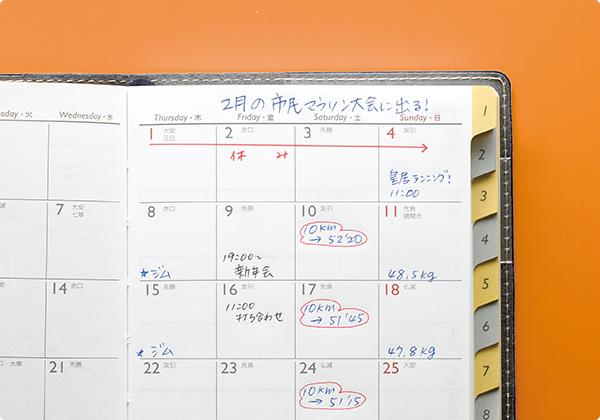 2月の市民マラソン大会に出る！
sday・火 Wednesday・水 Thursday・木 Friday・金 Saturday・土 Sunday・日
1 大安 元日 2 赤口 3 先勝 4 友引
休み
皇居ランニング！
11:00
7 大安 七草 8 赤口 9 先勝 10 友引 11 先負 鏡開き
10km
→ 52'20
19:00〜
新年会
★ジム
48.5kg
14 赤口 15 先勝 16 友引 17 先負 18 仏滅
11:00
打ち合わせ
10km
→ 51'45
★ジム
47.8kg
口・大寒 21 先勝 22 友引 23 先負 24 仏滅 25 大安
10km
→ 51'15
1
2
3
4
5
6
7
8